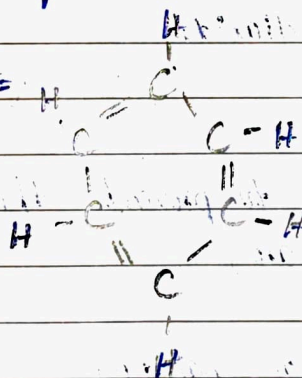 H
H C
C C - H
H - C C - H
C
H